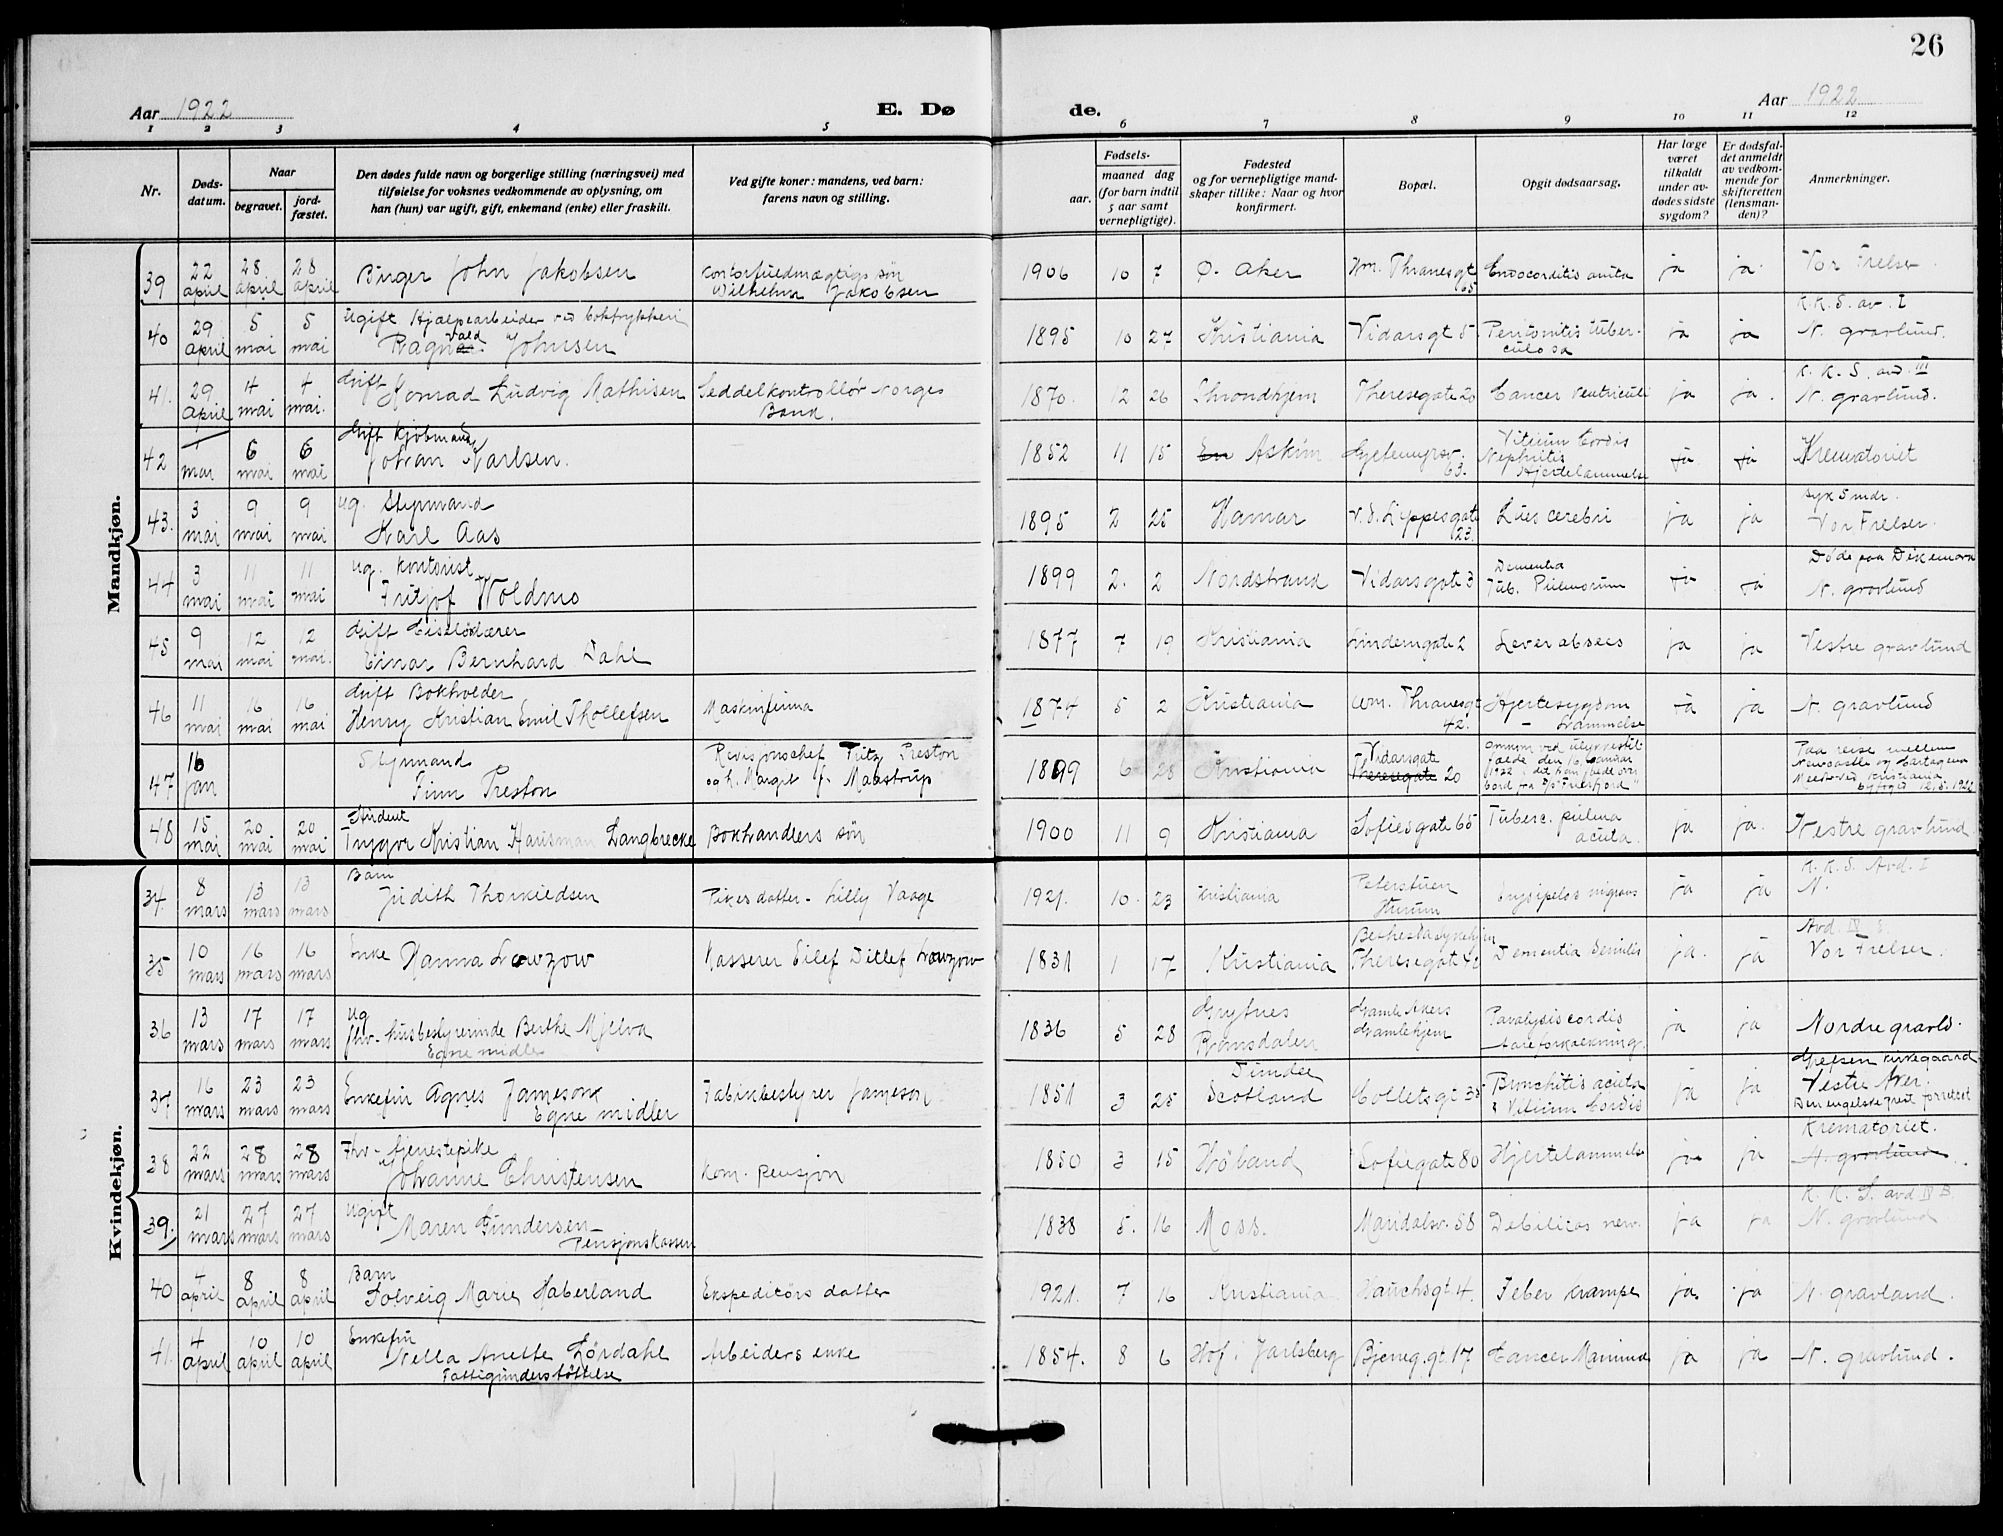 26
Aar 1922
E. Dø
de.
Aar 1922
1 2 3 4 5 6 7 8 9 10 11 12
Nr.
Døds-
datum.
Naar
begravet.
jord-
fæstet.
Den dødes fulde navn og borgerlige stilling (næringsvei) med
tilføielse for voksnes vedkommende av oplysning, om
han (hun) var ugift, gift, enkemand (enke) eller fraskilt.
Ved gifte koner: mandens, ved barn:
farens navn og stilling.
Fødsels-
aar.
maaned dag
(for barn indtil
5 aar samt
vernepligtige).
Fødested
og for vernepligtige mand-
skaper tillike: Naar og hvor
konfirmert.
Bopæl.
Opgit dødsaarsag.
Har læge
været
tilkaldt
under av-
dødes sidste
sygdom?
Er dødsfal-
det anmeldt
av vedkom-
mende for
skifteretten
(lensman-
den)?
Anmerkninger.
Mandkjøn.
39 22 april 28 april 28 april Birger John Jakobsen kontorfuldmægtigs søn Wilhelm Jakobsen 1906 10 7 Ø. Aker Wm. Thranesgt 65 Endocarditis acuta ja ja Vor Frelser
40 29 april 5 mai 5 mai Ugift Hjælpearbeider ved boktrykkeri Ragnvald Johnsen 1895 10 27 Kristiania Vidarsgt 5 Peritonitis tuberculosa ja ja K.K.S. av. I N. gravlund.
41. 29 april 4 mai 4 mai. Gift Konrad Ludvig Mathisen Seddelkontrollør Norges Bank. 1870. 12 26 Throndhjem Theresegate 20 Cancer ventriculi ja ja. K.K.S. avd. III N. gravlund.
42 1 mai 6 mai 6 mai Gift Kjøbmand Johan Karlsen. 1852 11 15 Askim Gjetemyrsv. 63. Vitium Cordis Nephritis Hjertelammelse ja ja Krematoriet
43. 3 mai 9 mai 9 mai ug. Styrmand Karl Aas 1895 2 25 Hamar 23. Lues cerebri ja ja syk 5 mdr. Vor Frelser.
44 3 mai 11 mai 11 mai ug. kontorist Fritjof Woldmo 1899 2. 2 Nordstrand Vidarsgate 3 Dementia Tub. Pulmorum ja ja Døde paa Dikemark N. gravlund
45 9 mai 12 mai 12 mai. Gift Einar Bernhard Dahl 1877 7 19 Kristiania Lindemgate 2 Leverabsces ja ja Vestre gravlund
46 11 mai 16 mai 16 mai Gift Bokholder Henry Kristian Emil Thollefsen Maskinfirma 1874 5 2 Kristiania Wm. Thranesgt 42. Hjertesygdom - Lammelse ja ja N. gravlund
47 16 jan Styrmand Finn Preston Revisjonschef Fritz Preston og h. Margit f. Maastrup 1899 6 28 Kristiania Vidarsgate Theresegate 20 Omkom ved ulykkestilfælde den 16. januar 1922 i det han faldt over bord fra D/S "Frierfjord" Paa reise mellem Newcastle og Cartagena Kristiania byfoged 12/5. 1922
48 15 mai 20 mai 20 mai Student Trygve Kristian Hansman Langbrecke Bokhandlers søn 1900 11 9 Kristiania Sofiesgate 65 Tuberc. pulma acuta. ja ja. Vestre gravlund
Kvindekjøn.
34. 8 mars 13 mars 13 mars Barn Judith Thorkildsen Pikes datter - Lilly Vaage 1921. 10. 23 Kristiania Peterstuen Hurum Erysipelas migrans ja ja K.K.S. Avd. I N.
35 10 mars 16 mars 16 mars Enke Hanna Lowzow Kasserer Eilef Ditlef Lowzow 1831 1 17 Kristiania Theresegate Dementia senilis ja. ja Avd. IV Vor Frelser.
36 13 mars 17 mars 17 mars Ug fhv. husbestyrerinde Berthe Mjelva Egne midler 1836 5 28 Grytnes Romsdalen Gamle Akers Gamlehjem Paralysis cordis Aareforkalkning. ja ja Nordre gravld.
37. 16 mars 23 mars 23 mars Enkefru Agnes Jameson Egne midler Fabrikbestyrer Jameson 1851 3 25 Dundee Scotland Colletsgt 35 Bronchitis acuta & Vitium Cordis ja ja Grefsen kirkegaard Vestre Aker. Den engelske prest forrettet
38 22 mars 28 mars 28 mars Fhv. tjenestepike Johanne Christensen kom. pensjon 1850 3 15 Høland Sofiegate 80 Hjertelammelse ja ja Krematoriet. N. gravlund.
39. 21 mars 27 mars 27 mars Ugift Maren Gundersen Pensjonskassen 1838 5. 16 Moss. Maridalsv. 58 Debilitas nerv. ja ja K.K.S. avd IV B. N. gravlund
40 4 april 8 april 8 april Barn Solveig Marie Haberland Ekspeditørs datter 1921. 7 16 Kristiania Hauchsgt 4. Feber krampe ja. ja N. gravlund.
41. 4 april 10 april 10 april Enkefru Nella Anette Lørdahl Fattigunderstøttelse Arbeiders enke 1854. 8 6 Hof i Jarlsberg Bjerreg. gt. 17 Cancer Mamma ja ja N. gravlund.